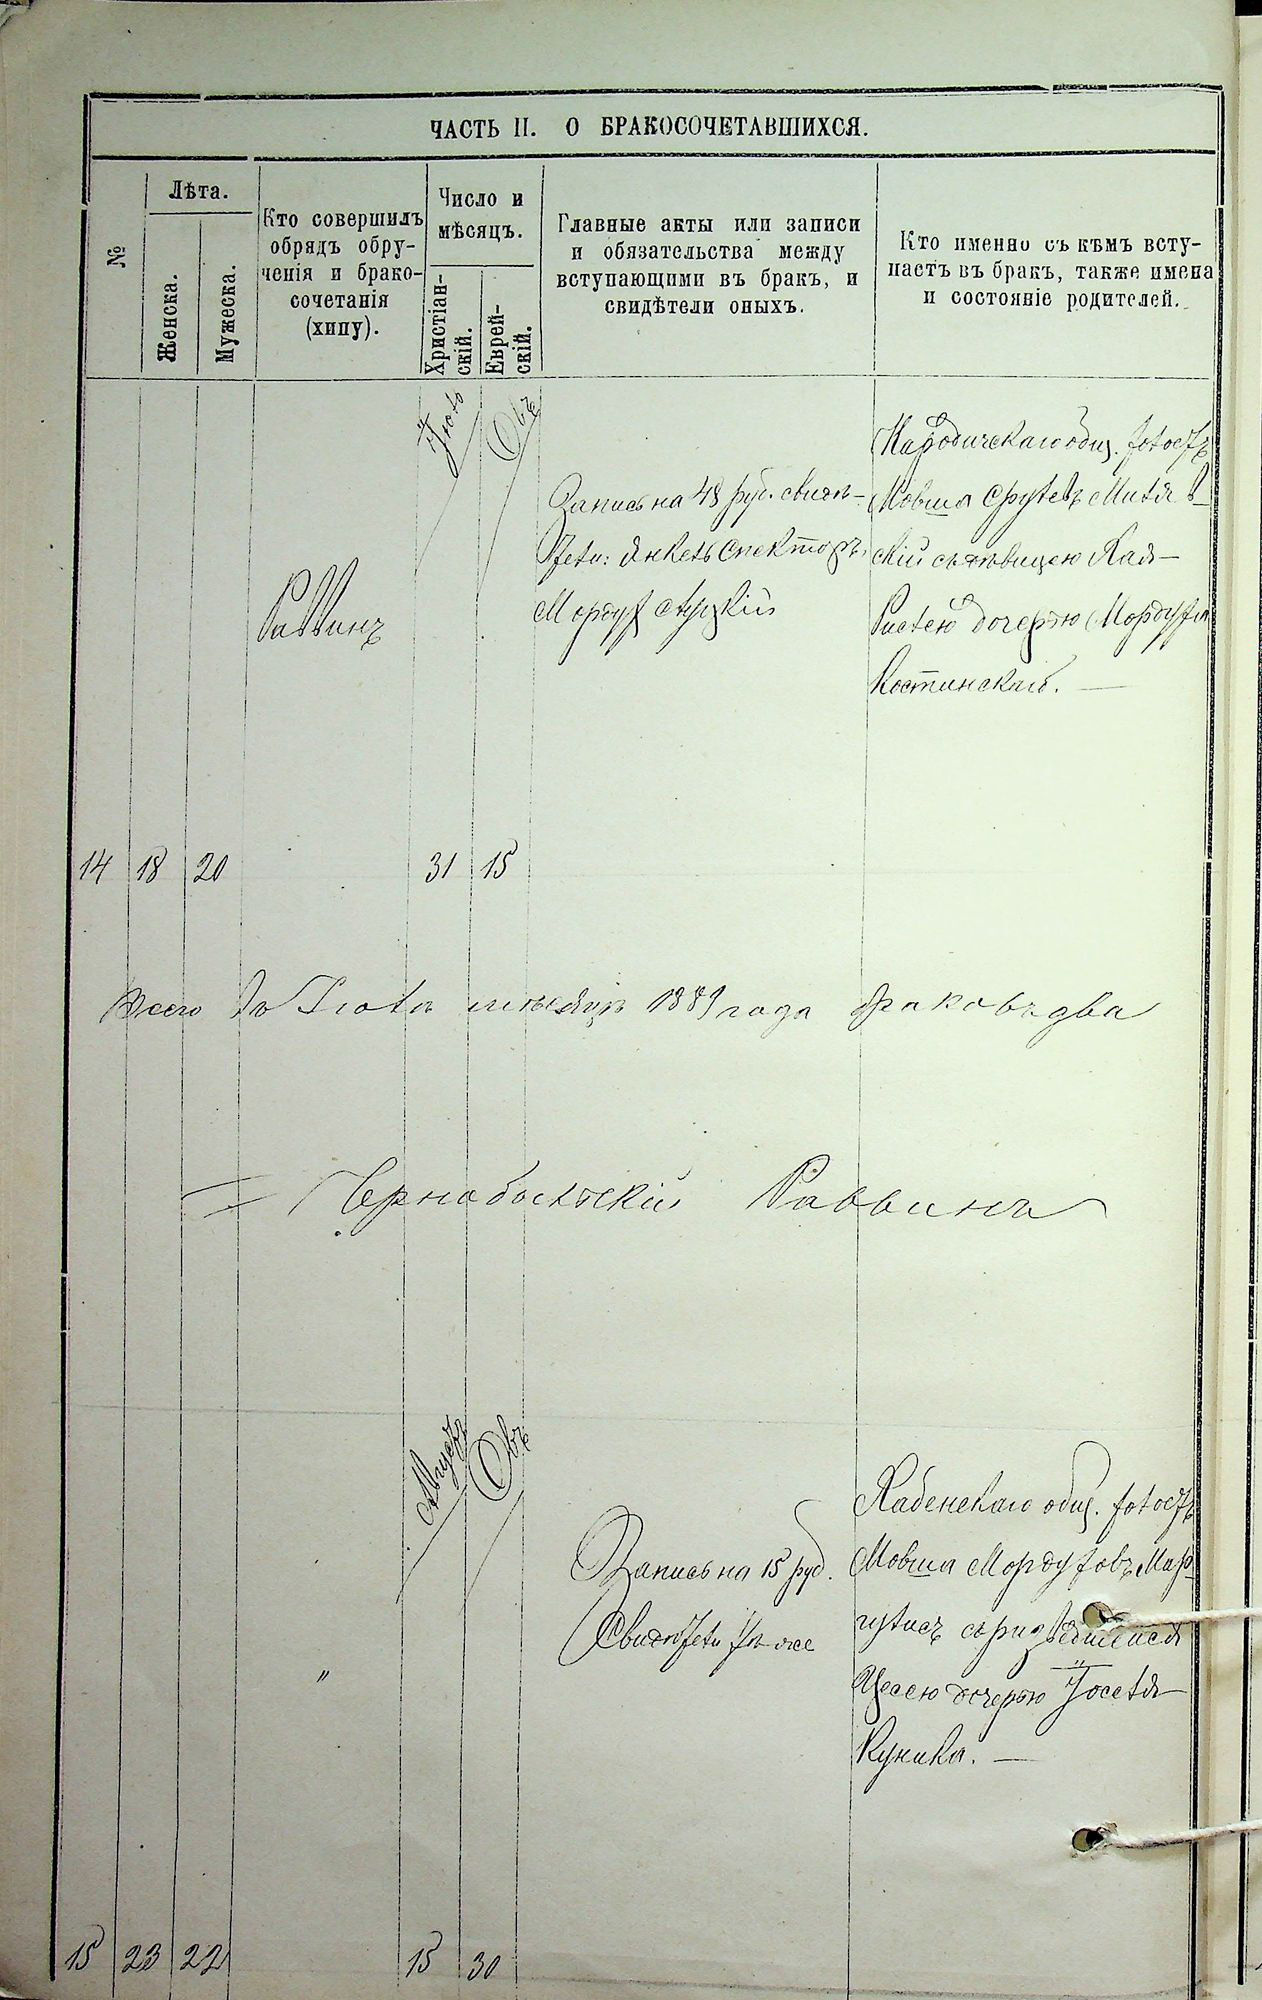 ЧАСТЬ II. О БРАКОСОЧЕТАВШИХСЯ.
№
Лѣта.
Женска.
Мужеска.
Кто совершилъ
обрядъ обру-
ченія и брако-
сочетанія
(хипу).
Число и
мѣсяцъ.
Христіан-
скій.
Еврей-
скій.
Главные акты или записи
и обязательства между
вступающими въ бракъ, и
свидѣтели оныхъ.
Кто именно съ кѣмъ всту-
паетъ въ бракъ, также имена
и состояніе родителей.
14
18
20
Раввинъ
Іюль
31
Овъ
15
Запись на 48 руб. свидѣ-
тели: Янкель Спекторъ,
Мордух Луцкій
Народичскаго общ. холост.
Мовша Срулевъ
скій съ дѣвицею Хая-
дочерью Мордуха
Костинскаго. —
Всего въ Іюлѣ мѣсяцѣ 1889 года браковъ два
Чернобыльскій Раввинъ
15
23
22
"
Августъ
15
Овъ
30
Запись на 15 руб.
Свидѣтели тѣ же
Хабенскаго общ. холост.
Мовша Мордуховъ Мар-
гулисъ съ разведшейся
Цесею дочерью Іоселя
Куника. —